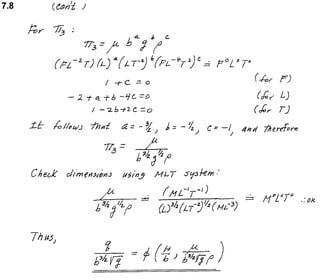 7.8 (con't )
For π₃ :
π₃ = μ bᵃ gᵇ ρᶜ
(FL⁻²T)(L)ᵃ(LT⁻²)ᵇ(FL⁻⁴T²)ᶜ ≐ F⁰L⁰T⁰
1 + c = 0 (for F)
-2 + a + b - 4c = 0 (for L)
1 - 2b + 2c = 0 (for T)
It follows that a = -3/2, b = -1/2, c = -1, and therefore
π₃ = μ / (b^3/2 g^1/2 ρ)
Check dimensions using MLT system:
μ / (b^3/2 g^1/2 ρ) ≐ (ML⁻¹T⁻¹) / ((L)^3/2 (LT⁻²)^1/2 (ML⁻³)) ≐ M⁰L⁰T⁰ ∴ ok
Thus,
q / (b^3/2 √g) = φ (H/b, μ / (b^3/2 √g ρ))